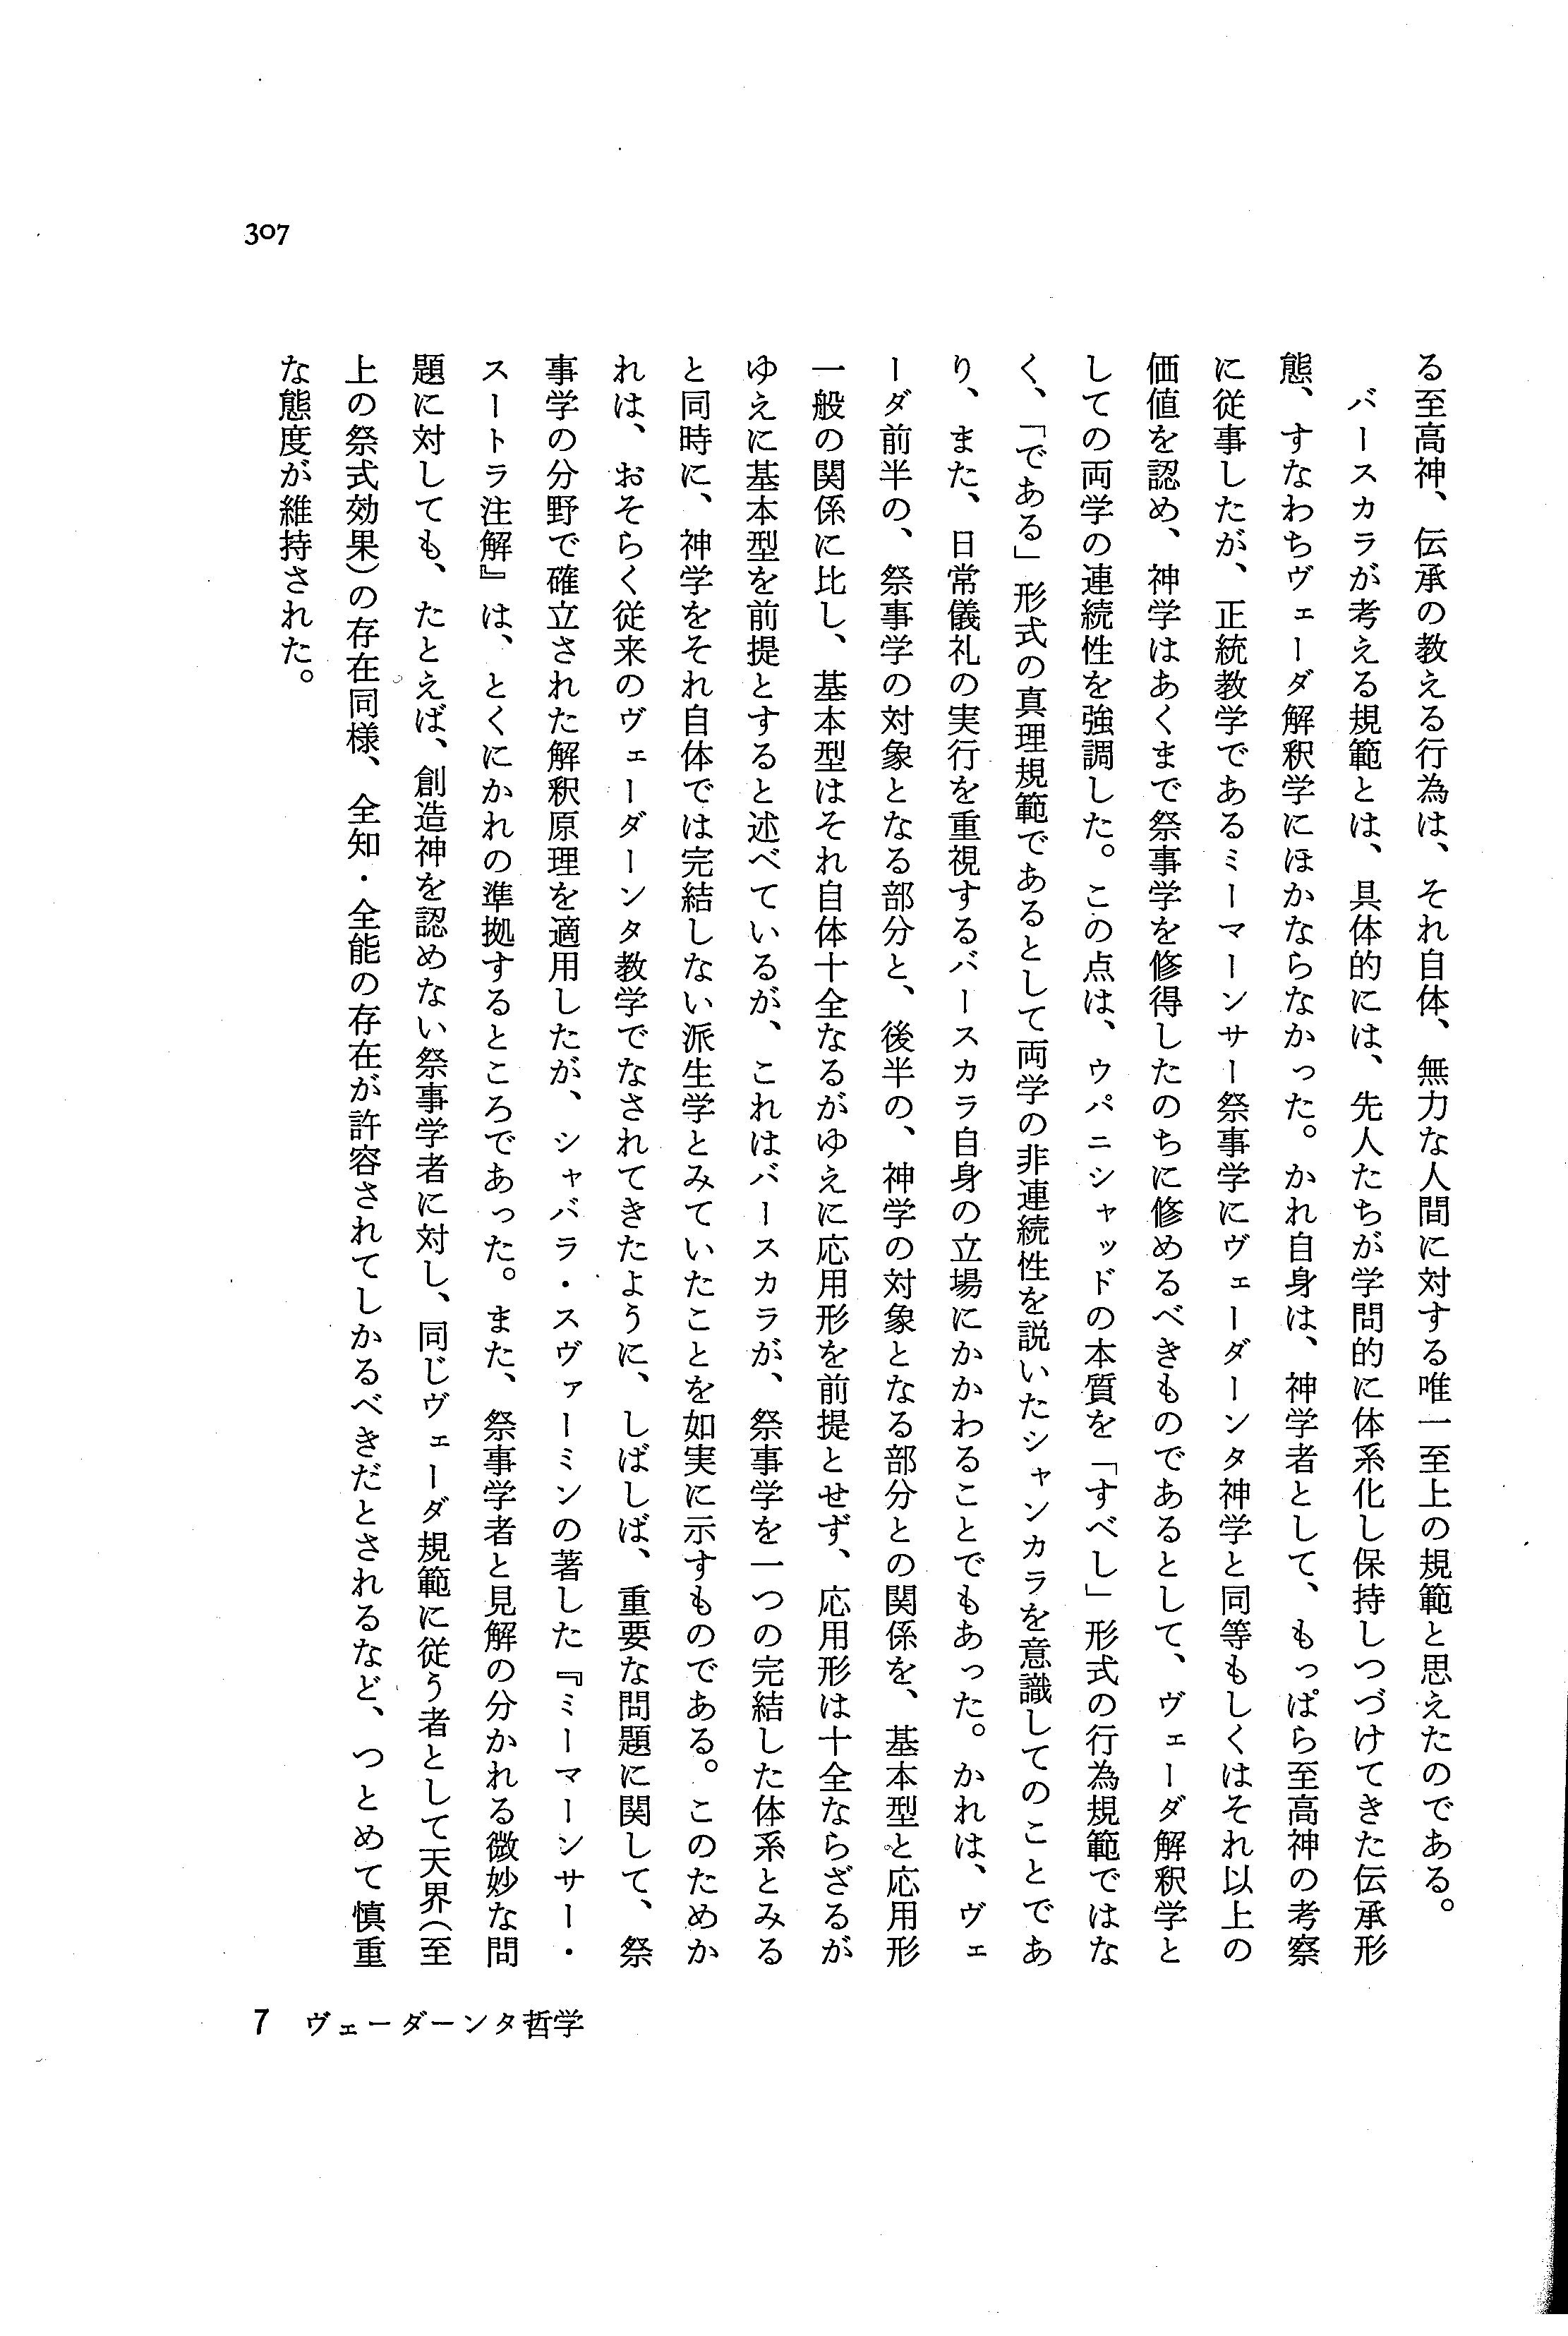 307
る至高神、伝承の教える行為は、それ自体、無力な人間に対する唯一至上の規範と思えたのである。
バースカラが考える規範とは、具体的には、先人たちが学問的に体系化し保持しつづけてきた伝承形
態、すなわちヴェーダ解釈学にほかならなかった。かれ自身は、神学者として、もっぱら至高神の考察
に従事したが、正統教学であるミーマーンサー祭事学にヴェーダーンタ神学と同等もしくはそれ以上の
価値を認め、神学はあくまで祭事学を修得したのちに修めるべきものであるとして、ヴェーダ解釈学と
しての両学の連続性を強調した。この点は、ウパニシャッドの本質を「すべし」形式の行為規範ではな
く、「である」形式の真理規範であるとして両学の非連続性を説いたシャンカラを意識してのことであ
り、また、日常儀礼の実行を重視するバースカラ自身の立場にかかわることでもあった。かれは、ヴェ
ーダ前半の、祭事学の対象となる部分と、後半の、神学の対象となる部分との関係を、基本型と応用形
一般の関係に比し、基本型はそれ自体十全なるがゆえに応用形を前提とせず、応用形は十全ならざるが
ゆえに基本型を前提とすると述べているが、これはバースカラが、祭事学を一つの完結した体系とみる
と同時に、神学をそれ自体では完結しない派生学とみていたことを如実に示すものである。このためか
れは、おそらく従来のヴェーダーンタ教学でなされてきたように、しばしば、重要な問題に関して、祭
事学の分野で確立された解釈原理を適用したが、シャバラ・スヴァーミンの著した『ミーマーンサー・
スートラ注解』は、とくにかれの準拠するところであった。また、祭事学者と見解の分かれる微妙な問
題に対しても、たとえば、創造神を認めない祭事学者に対し、同じヴェーダ規範に従う者として天界(至
上の祭式効果)の存在同様、全知・全能の存在が許容されてしかるべきだとされるなど、つとめて慎重
な態度が維持された。
7 ヴェーダーンタ哲学